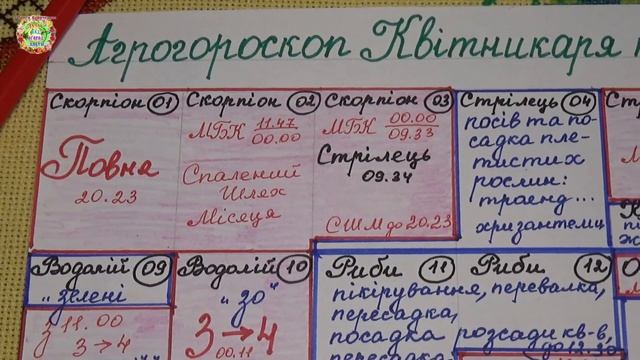 Агрогороскоп Квітникаря
Скорпіон 01
Повна
20.23
Скорпіон 02
МБК 11.47
00.00
Спалений
Шлях
Місяця
Скорпіон 03
МБК 00.00
09.33
Стрілець
09.34
СШМ до 20.23
Стрілець 04
посів та по-
садка пле-
тистих
рослин:
троянд...
хризантеми
Водолій 09
"зелені
з 11.00
3→4
Водолій 10
"зо"
3→4
00.11
Риби 11
Риби 12
пікірування, перевалка,
пересадка,
посадка розсади кв-в,
пересадка